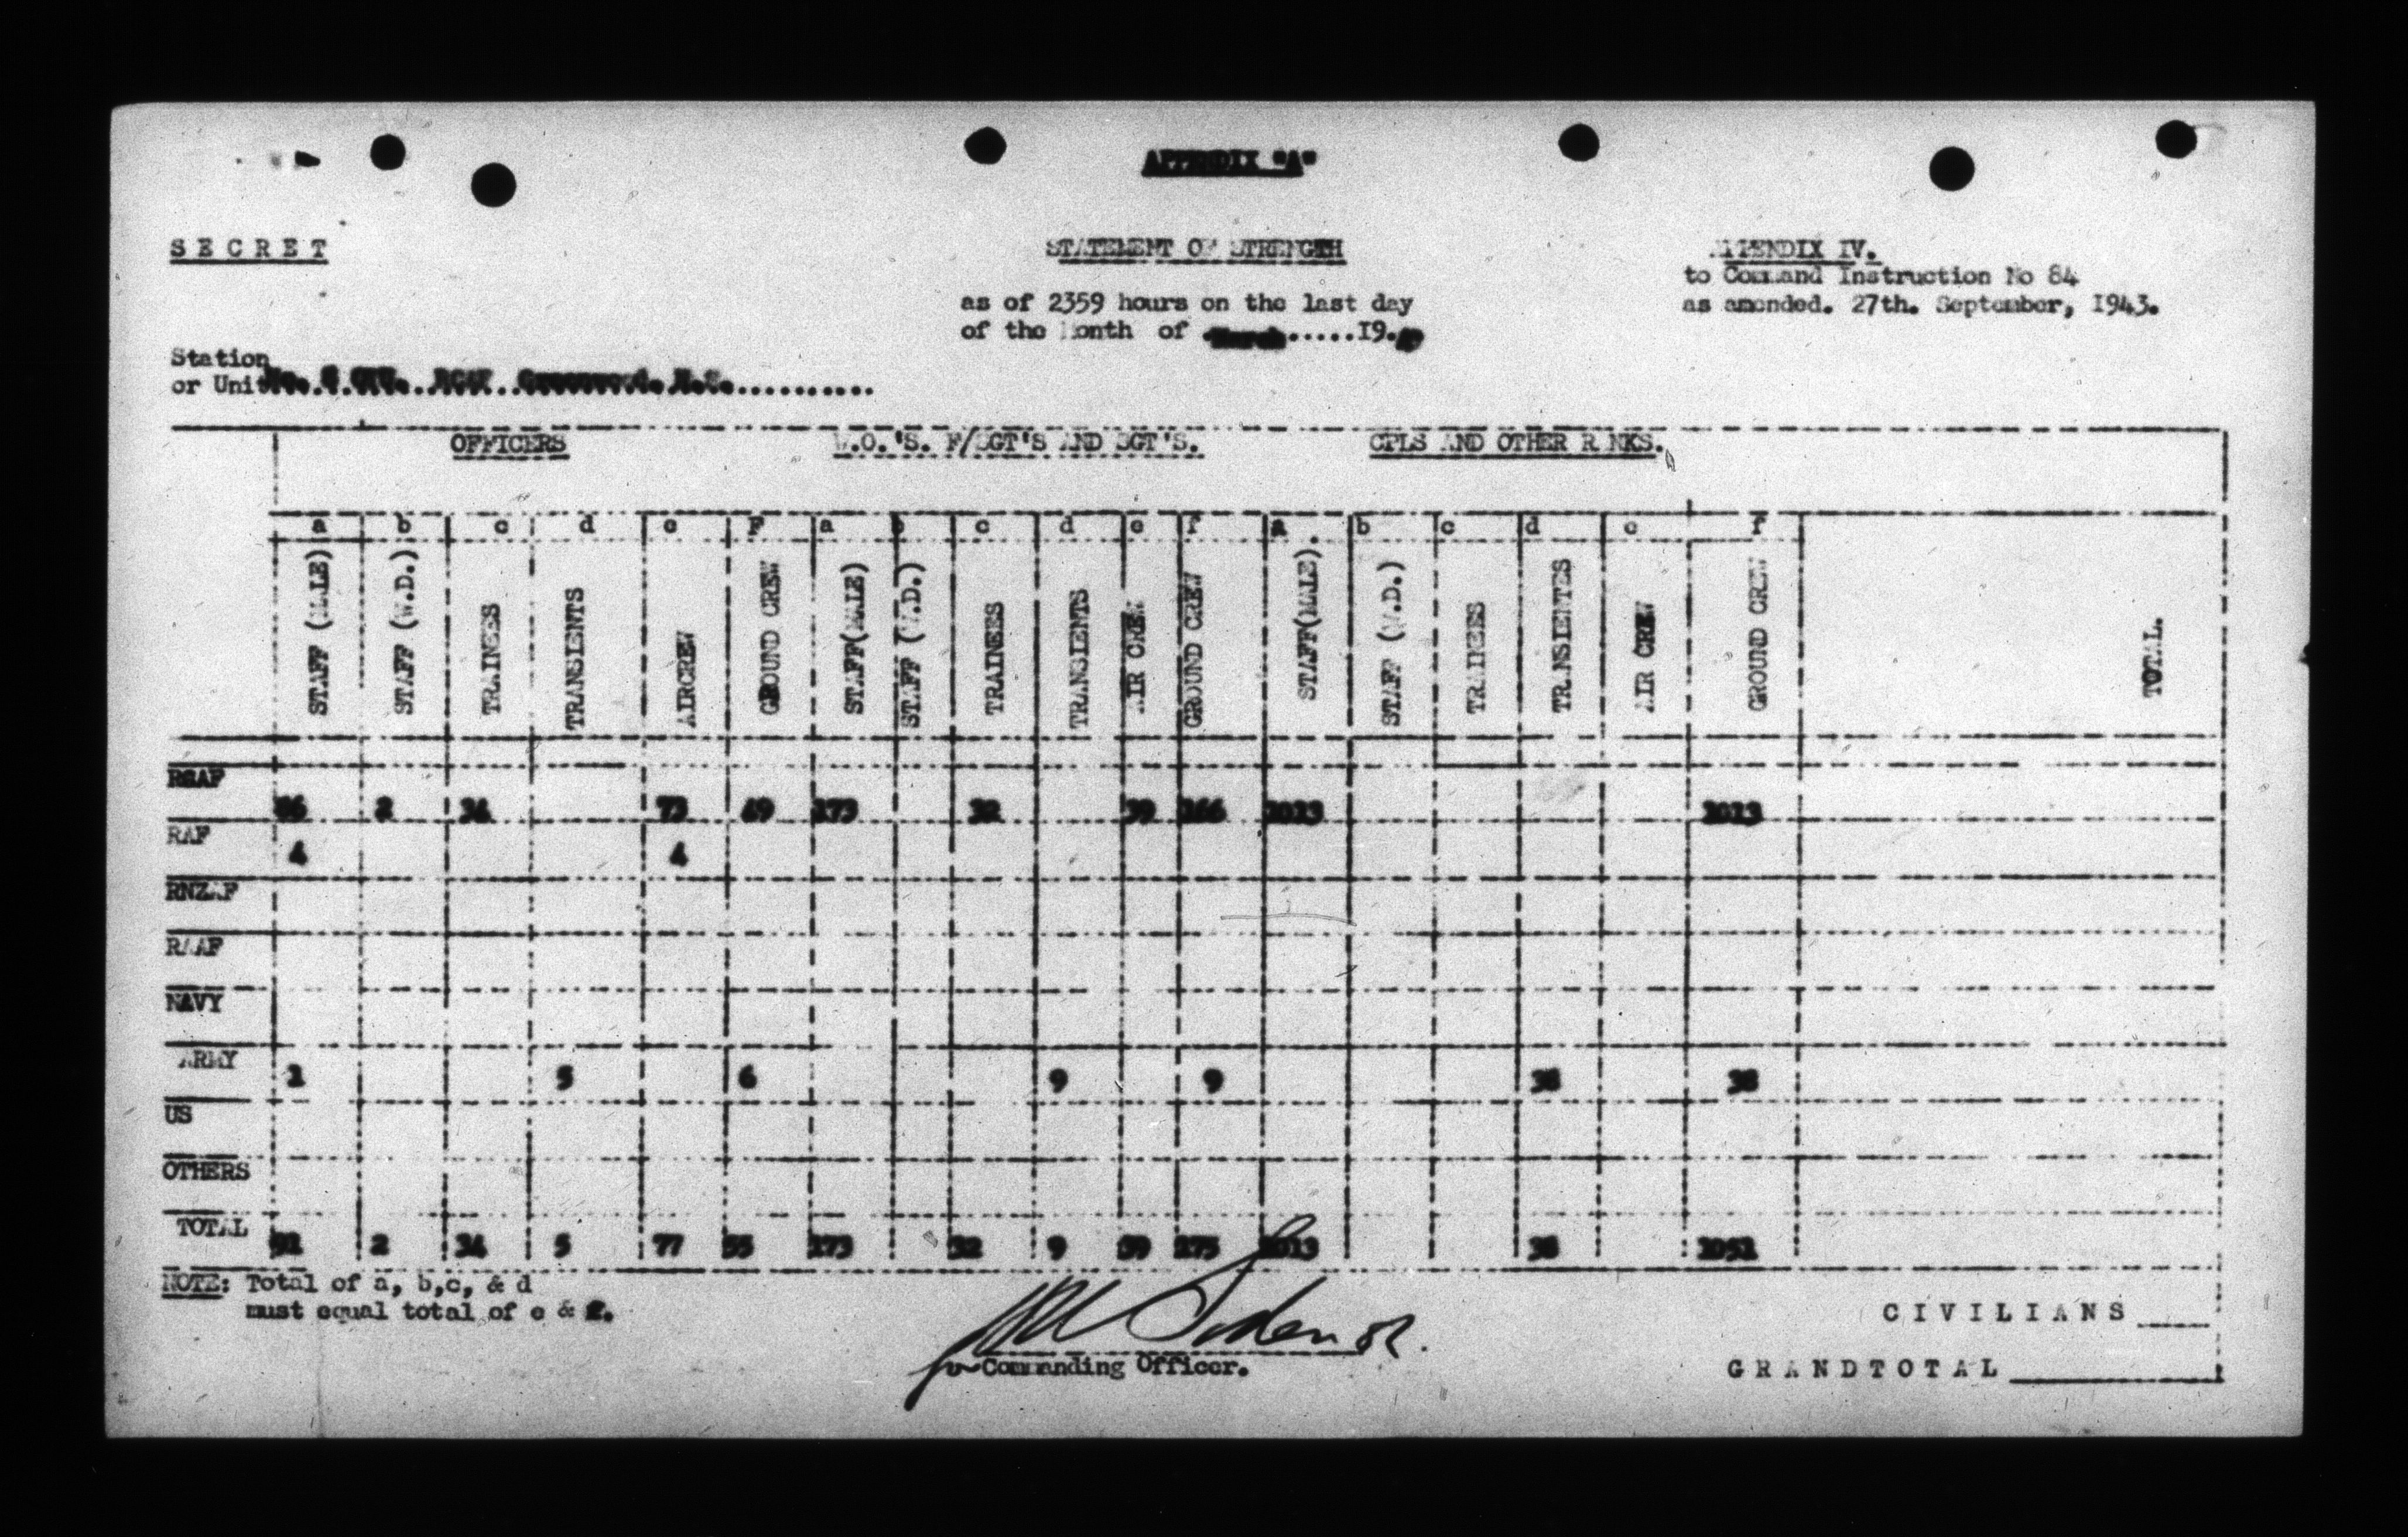 APPENDIX "A"
SECRET
STATEMENT OF STRENGTH
APPENDIX IV.
to Command Instruction No 84
as amended. 27th. September, 1943.
as of 2359 hours on the last day
of the Month of March.....19.
Station
or Unit No. OTU. RCAF Greenwood. N.S...........
OFFICERS W.O.'S. F/SGT'S AND SGT'S. CPLS AND OTHER RANKS.
a b c d e F a b c d e f a b c d e f
STAFF (MALE) STAFF (W.D.) TRAINEES TRANSIENTS AIRCREW GROUND CREW STAFF(MALE) STAFF (W.D.) TRAINEES TRANSIENTS AIR CREW GROUND CREW STAFF(MALE). STAFF (W.D.) TRAINEES TRANSIENTES AIR CREW GROUND CREW TOTAL.
RCAF
86 2 34 73 49 173 32 39 166 1013 1013
RAF
4 4
RNZAF
RAAF
NAVY
ARMY
1 5 6 9 9 38 38
US
OTHERS
TOTAL
91 2 34 5 77 55 173 32 9 39 175 1013 38 1051
NOTE: Total of a, b,c, & d
must equal total of e & f.
CIVILIANS
Commanding Officer.
GRANDTOTAL